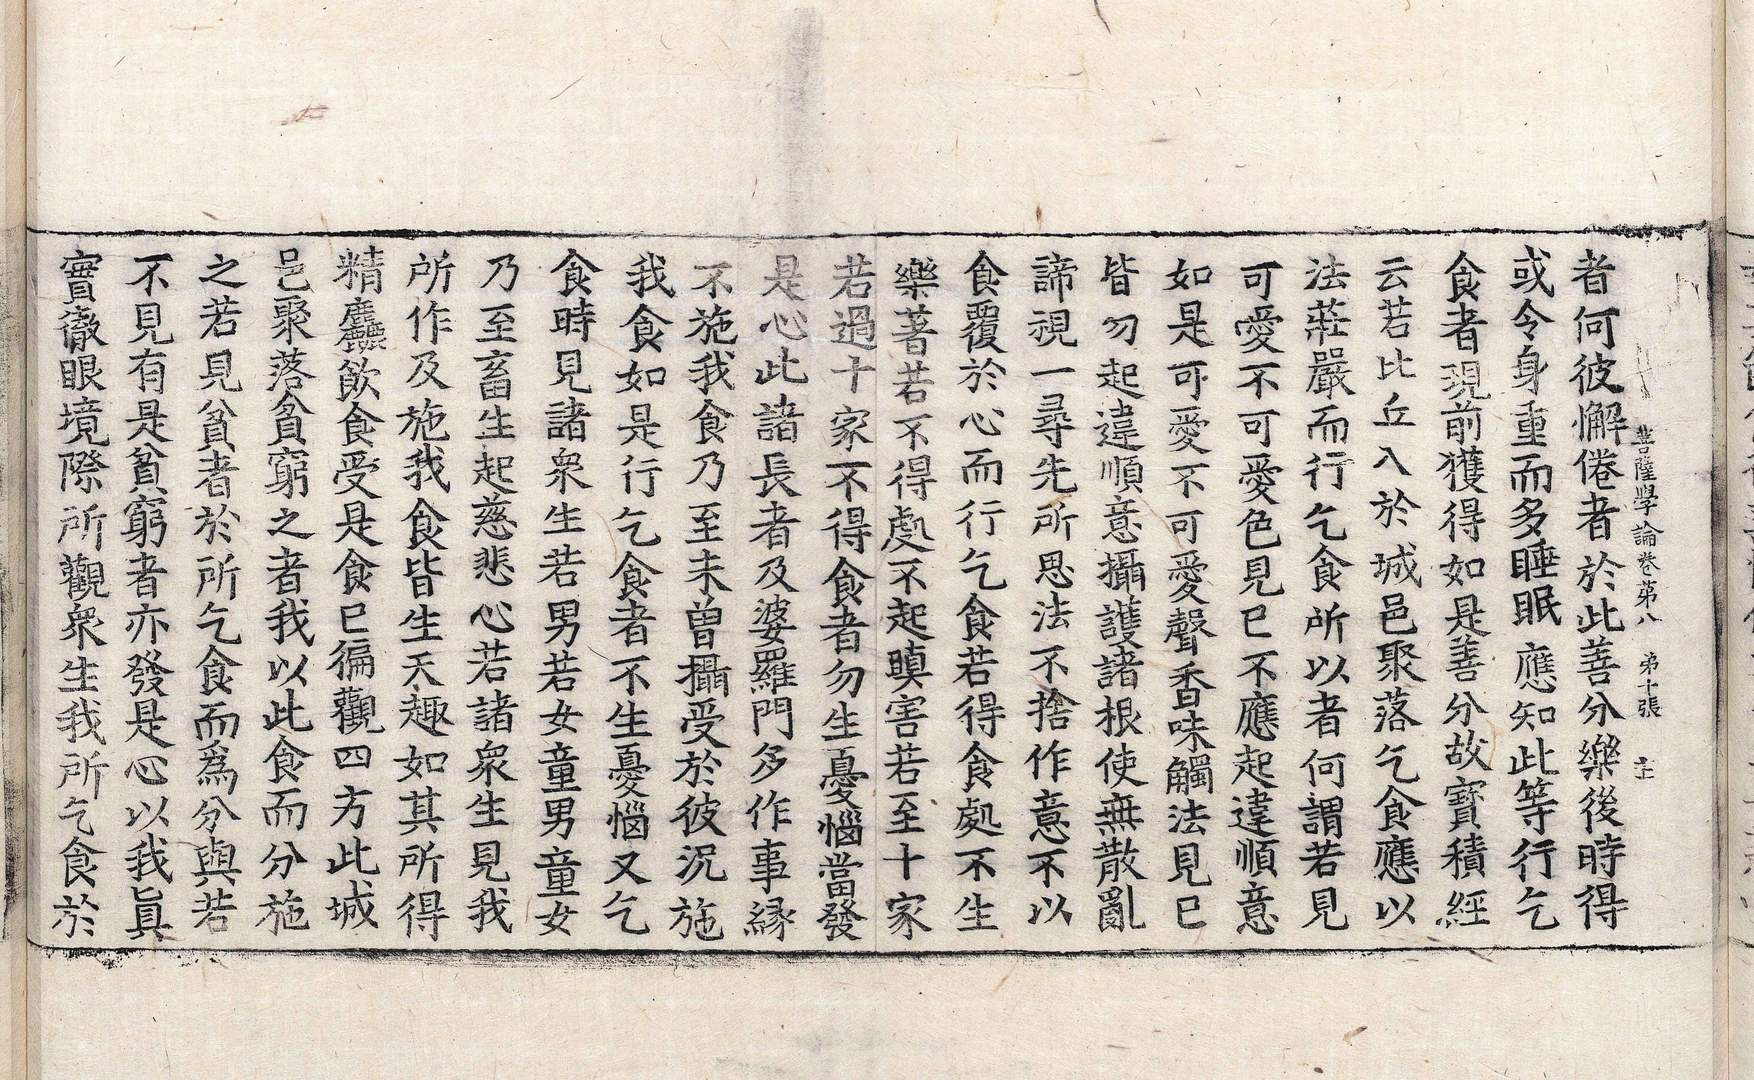 菩薩學論卷第八　第十張
者何彼懈倦者於此善分樂後時得
或令身重而多睡眠應知此等行乞
食者現前獲得如是善分故寶積經
云若比丘入於城邑聚落乞食應以
法莊嚴而行乞食所以者何謂若見
可愛不可愛色見已不應起違順意
如是可愛不可愛聲香味觸法見已
皆勿起違順意攝護諸根使無散亂
諦視一尋先所思法不捨作意不以
食覆於心而行乞食若得食處不生
樂著若不得處不起瞋害若至十家
若過十家不得食者勿生憂惱當發
是心此諸長者及婆羅門多作事緣
不施我食乃至未曾攝受於彼沉施
我食如是行乞食者不生憂惱又乞
食時見諸衆生若男若女童男童女
乃至畜生起慈悲心若諸衆生見我
所作及施我食皆生天趣如其所得
精麤飲食受是食已徧觀四方此城
邑聚落貧窮之者我以此食而分施
之若見貧者於所乞食而爲分與若
不見有是貧窮者亦發是心以我眞
實徹眼境際所觀衆生我所乞食於